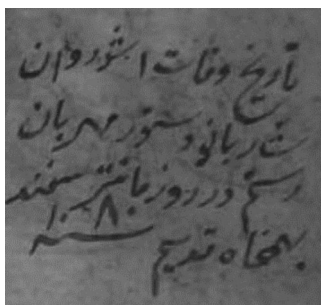 تاریخ وفات اشوروان
شاربانو دستور مهربان
رستم در روز مانتر سفند
بهمنماه قدیم سنه ۱۰۸۰